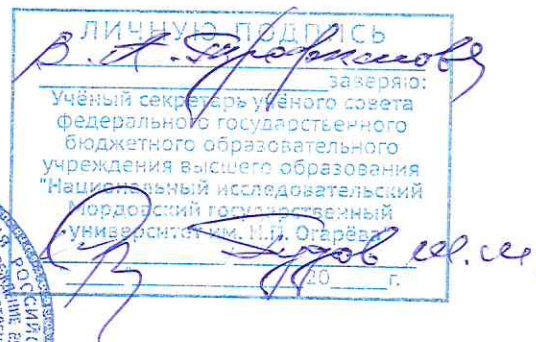 ЛИЧНУЮ ПОДПИСЬ
В. А. Трофимова
заверяю:
Учёный секретарь учёного совета
федерального государственного
бюджетного образовательного
учреждения высшего образования
"Национальный исследовательский
Мордовский государственный
университет им. Н.П. Огарёва"
М.М.
20 г.